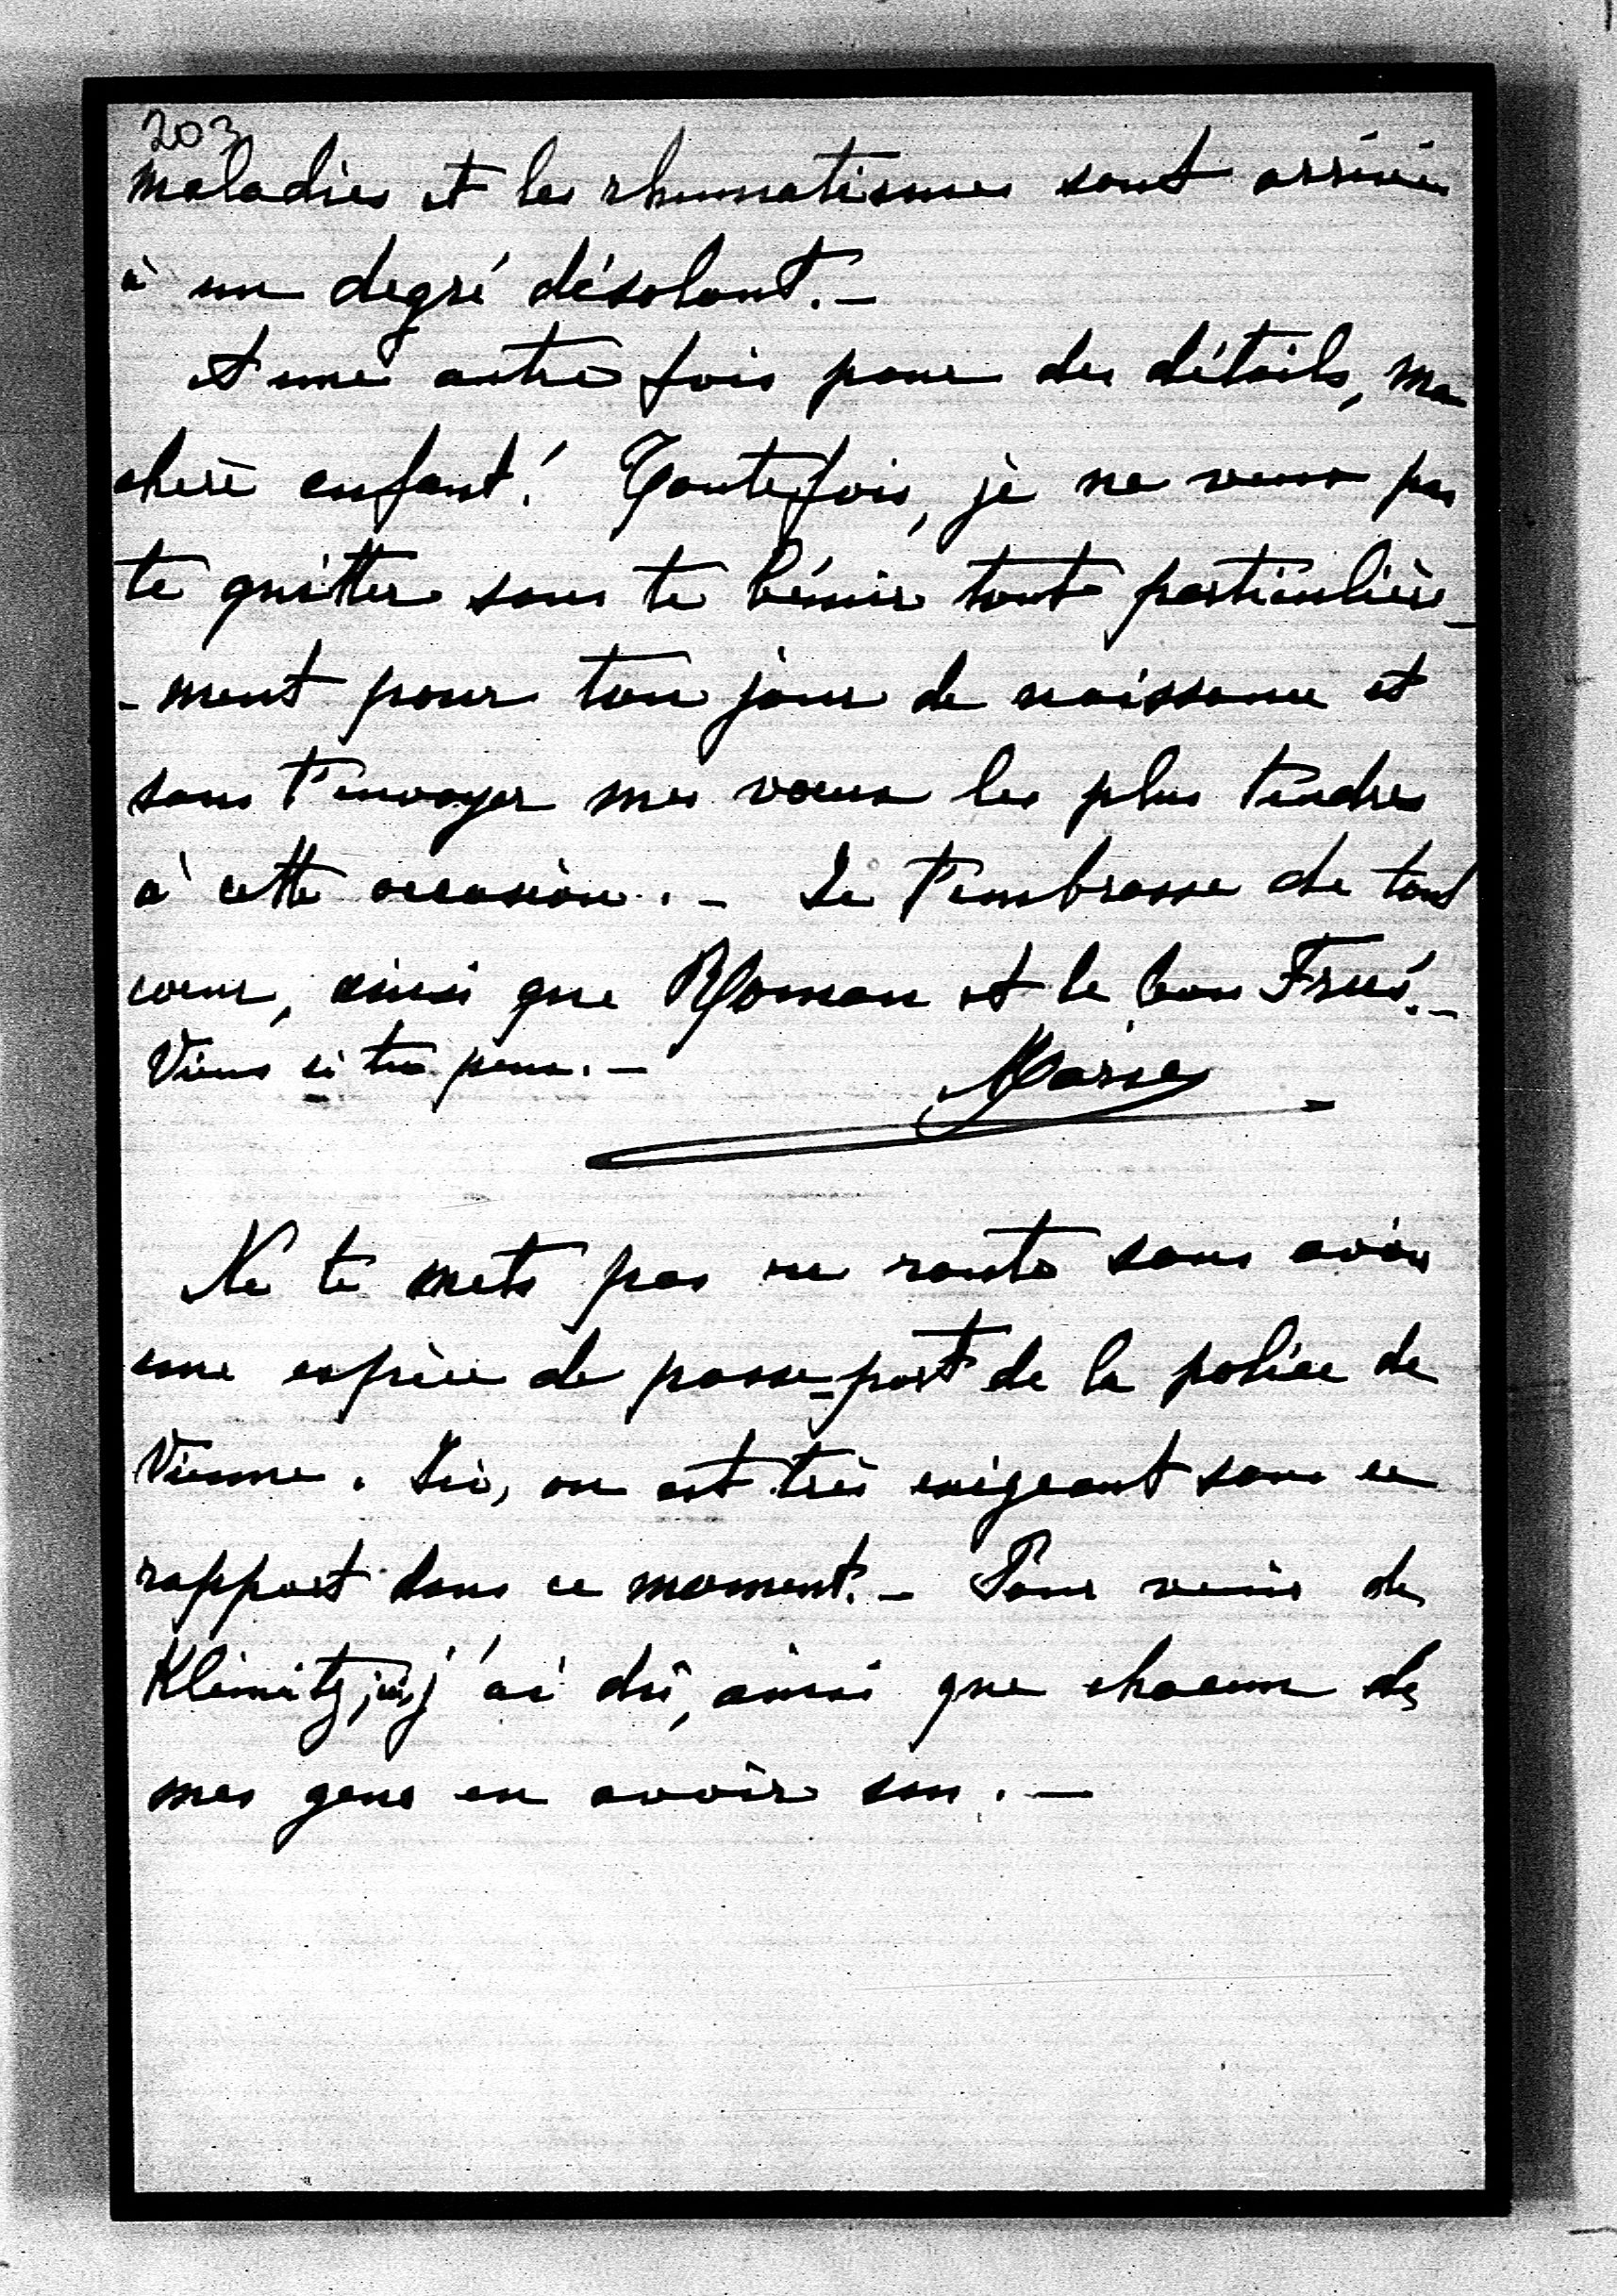 203
maladies et les rhumatismes sont arrivés
à un degré désolant. –
et une autre fois pour des détails, ma
chère enfant! Toutefois, je ne veux pas
te quitter sans te bénir tout particulière-
-ment pour ton jour de naissance et
sans t'envoyer mes vœux les plus tendres
à cette occasion. – Je t'embrasse de tout
cœur, ainsi que Roman et le bon –
Viens si tu peux. – Marie
Ne te mets pas en route sans avoir
une espèce de passe-port de la police de
Vienne. Ici, on est très exigeant sous ce
rapport dans ce moment. – Pour venir de
ici, j'ai dû, ainsi que chacun de
mes gens en avoir un. –